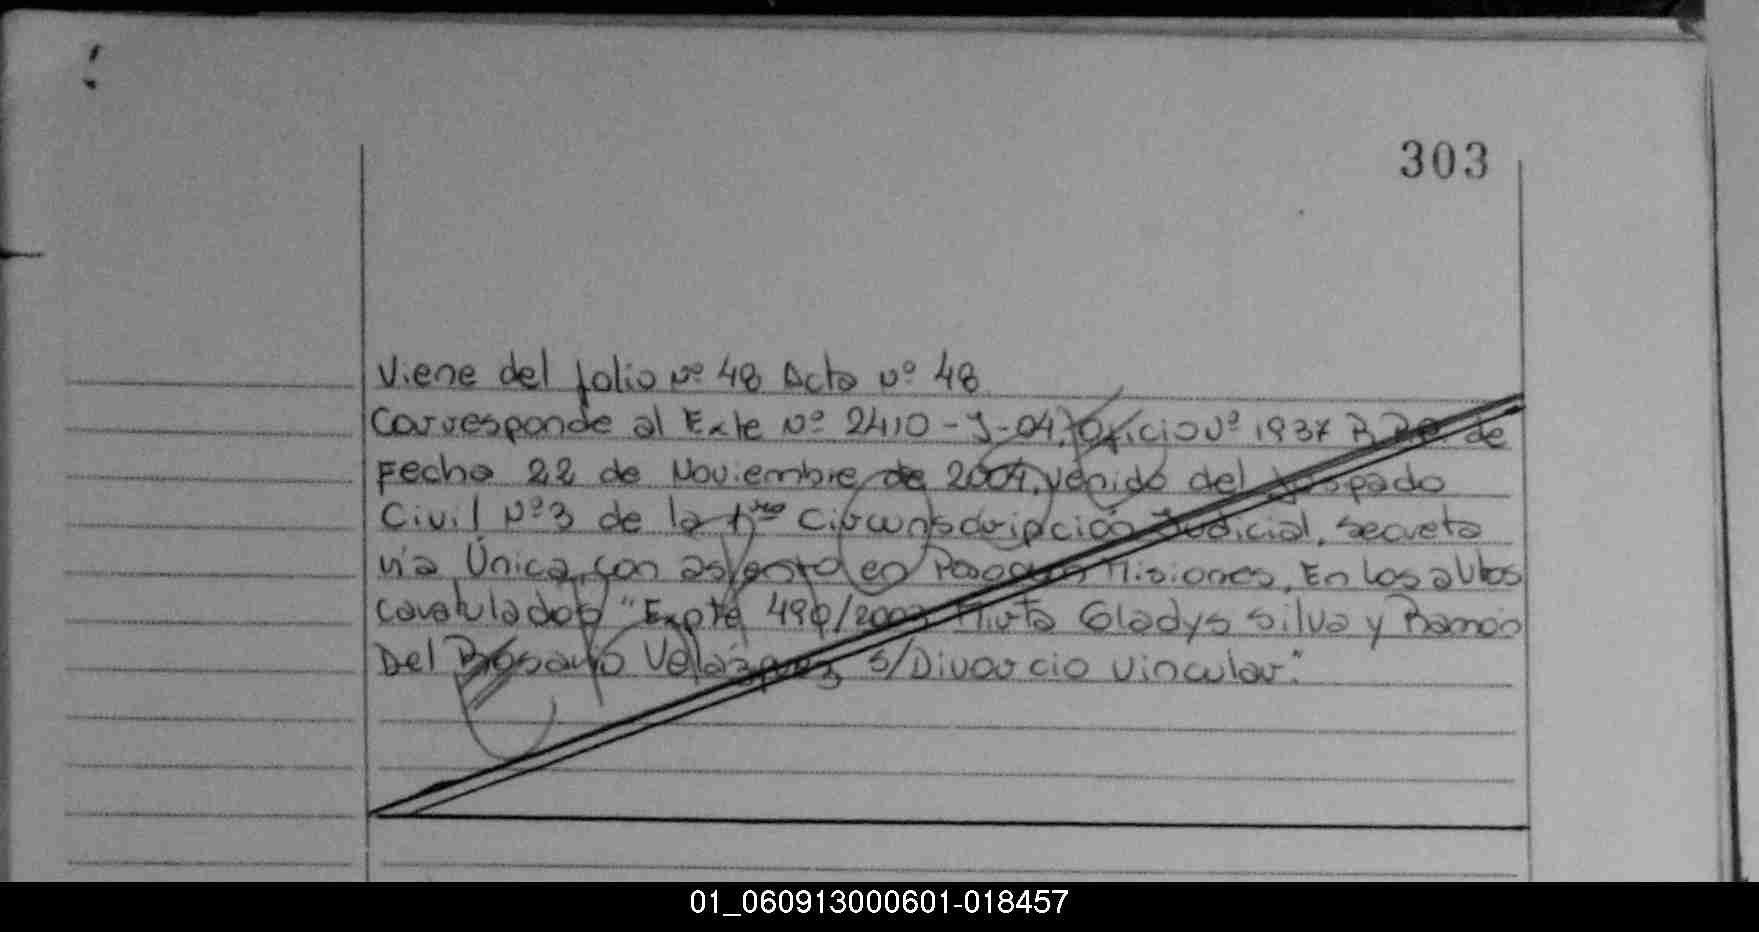 303
Viene del folio Nº 48 Acta Nº 48
Corresponde al Exte Nº 2410-J-04, Oficio Nº 1937 de
Fecha 22 de Noviembre de 2004, venido del Juzgado
Civil Nº3 de la 1ra Circunscripción Judicial, Secreta
ría Única, con asiento en Posadas Misiones, En los autos
caratulados "Expte 490/2003 Mirta Gladys Silva y Ramón
Del Rosario Velázquez s/Divorcio Vincular".
01_060913000601-018457